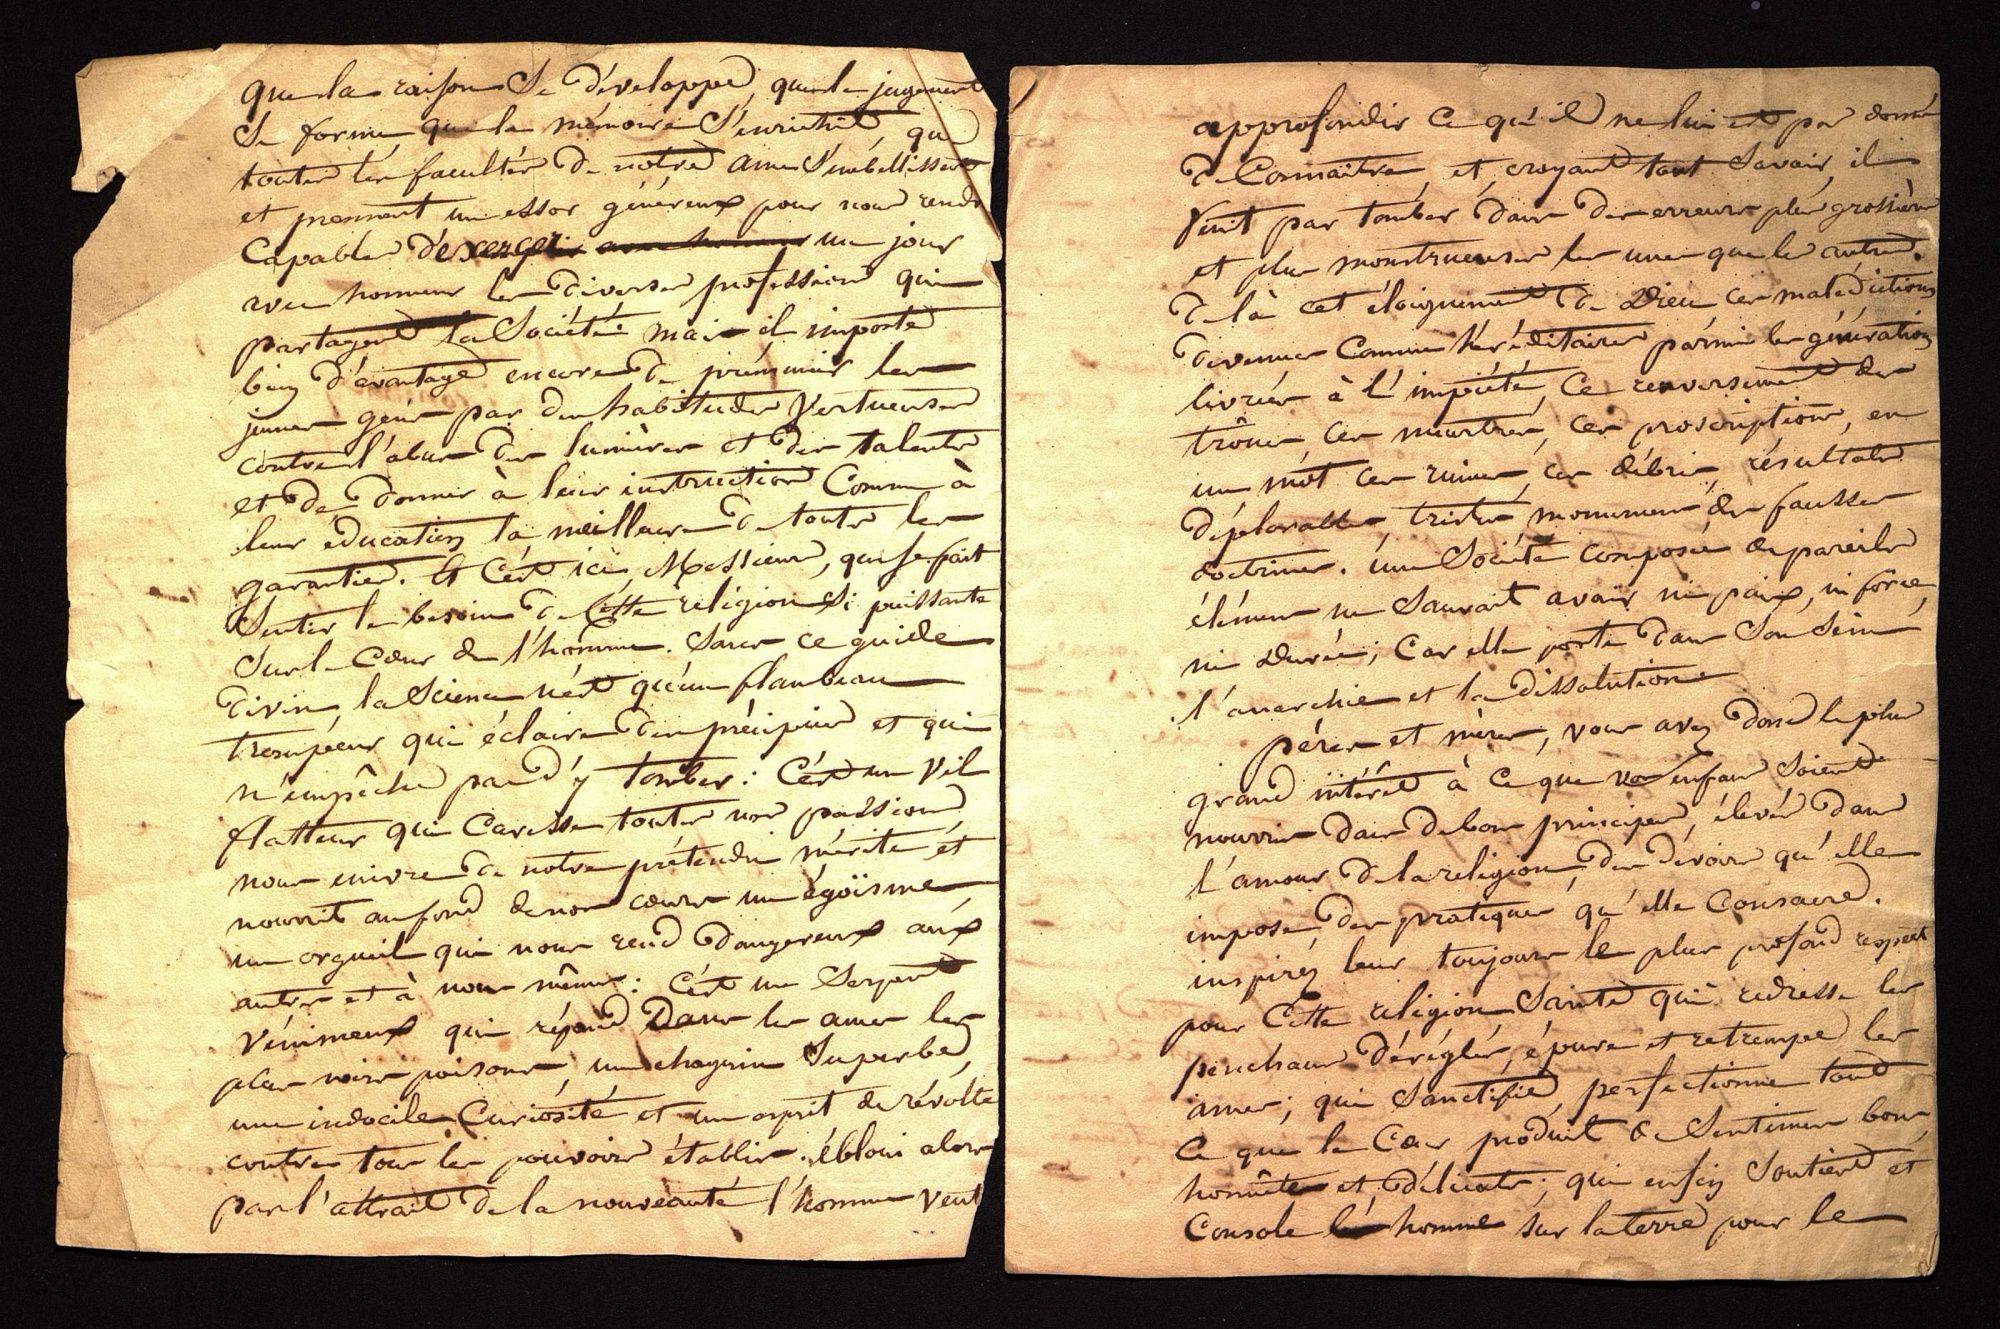 que la raison se développe, que le jugement
se forme, que la mémoire s'enrichit, que
toutes les facultés de notre ame s'embellissent
et prennent un essor généreux pour nous rendre
capables d'exercer avec honneur un jour
avec honneur les diverses professions qui
partagent la Société: mais il importe
bien d'avantage encore de prémunir les
jeunes gens par des habitudes vertueuses
contre l'abus des lumières et des talents
et de donner à leur instruction Comme à
leur éducation la meilleure de toutes les
garanties. Et C'est ici, Messieurs, que se fait
sentir le besoin de Cette religion si puissante
sur le Cœur de l'homme. Sans ce guide
divin, la Science n'est qu'un flambeau
trompeur qui éclaire des précipices et qui
n'empêche pas d'y tomber: C'est un vil
flatteur qui Caresse toutes nos passions,
nous enivre de notre prétendu mérite et
nourrit au fond de nos cœurs un égoïsme,
un orgueil qui nous rend dangereux aux
autres et à nous mêmes: C'est un Serpent
vénimeux qui répand Dans les ames les
plus noirs poisons, un chagrin Superbe,
une indocile Curiosité et un esprit de révolte
contre tous les pouvoirs établis. ébloui alors
par l'attrait de la nouveauté l'homme veut
approfondir Ce qu'il ne lui est pas donné
de Connaître et croyant tout Savoir, il
finit par tomber dans des erreurs plus grossières
et plus monstrueuses les unes que les autres.
de là cet éloignement de Dieu, ces malédictions
devenues Comme héréditaires parmi les générations
livrées à l'impiété, Ce renversement des
trônes, Ces meurtres, Ces proscriptions, en
un mot Ces ruines, ces débris, résultats
déplorables, tristes monumens des fausses
doctrines. une Société composée de pareils
élémens ne Saurait avoir ni paix, ni force,
ni durée; Car elle porte dans Son Sein
l'anarchie et la dissolution.
péres et méres, vous avez donc le plus
grand intérêt à Ce que vos enfans Soient
nourris dans de bons principes, élevés dans
l'amour de la religion, des devoirs qu'elle
impose, des pratiques qu'elle Consacre.
inspirez leur toujours le plus profond respect
pour Cette religion Sainte qui redresse les
penchans déréglés, épure et retrempe les
ames; qui Sanctifie, perfectionne tout
Ce que le Cœur produit de Sentimens bons,
honnêtes et délicats; qui enfin Soutient et
Console les hommes sur la terre pour le